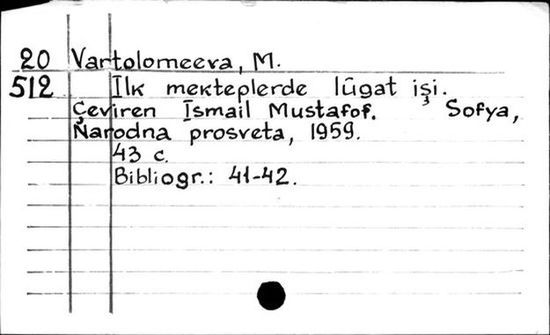 20 Vartolomeeva, M.
512 İlk mekteplerde lûgat işi.
Çeviren İsmail Mustafof. Sofya,
Narodna prosveta, 1959.
43 c.
Bibliogr.: 41-42.